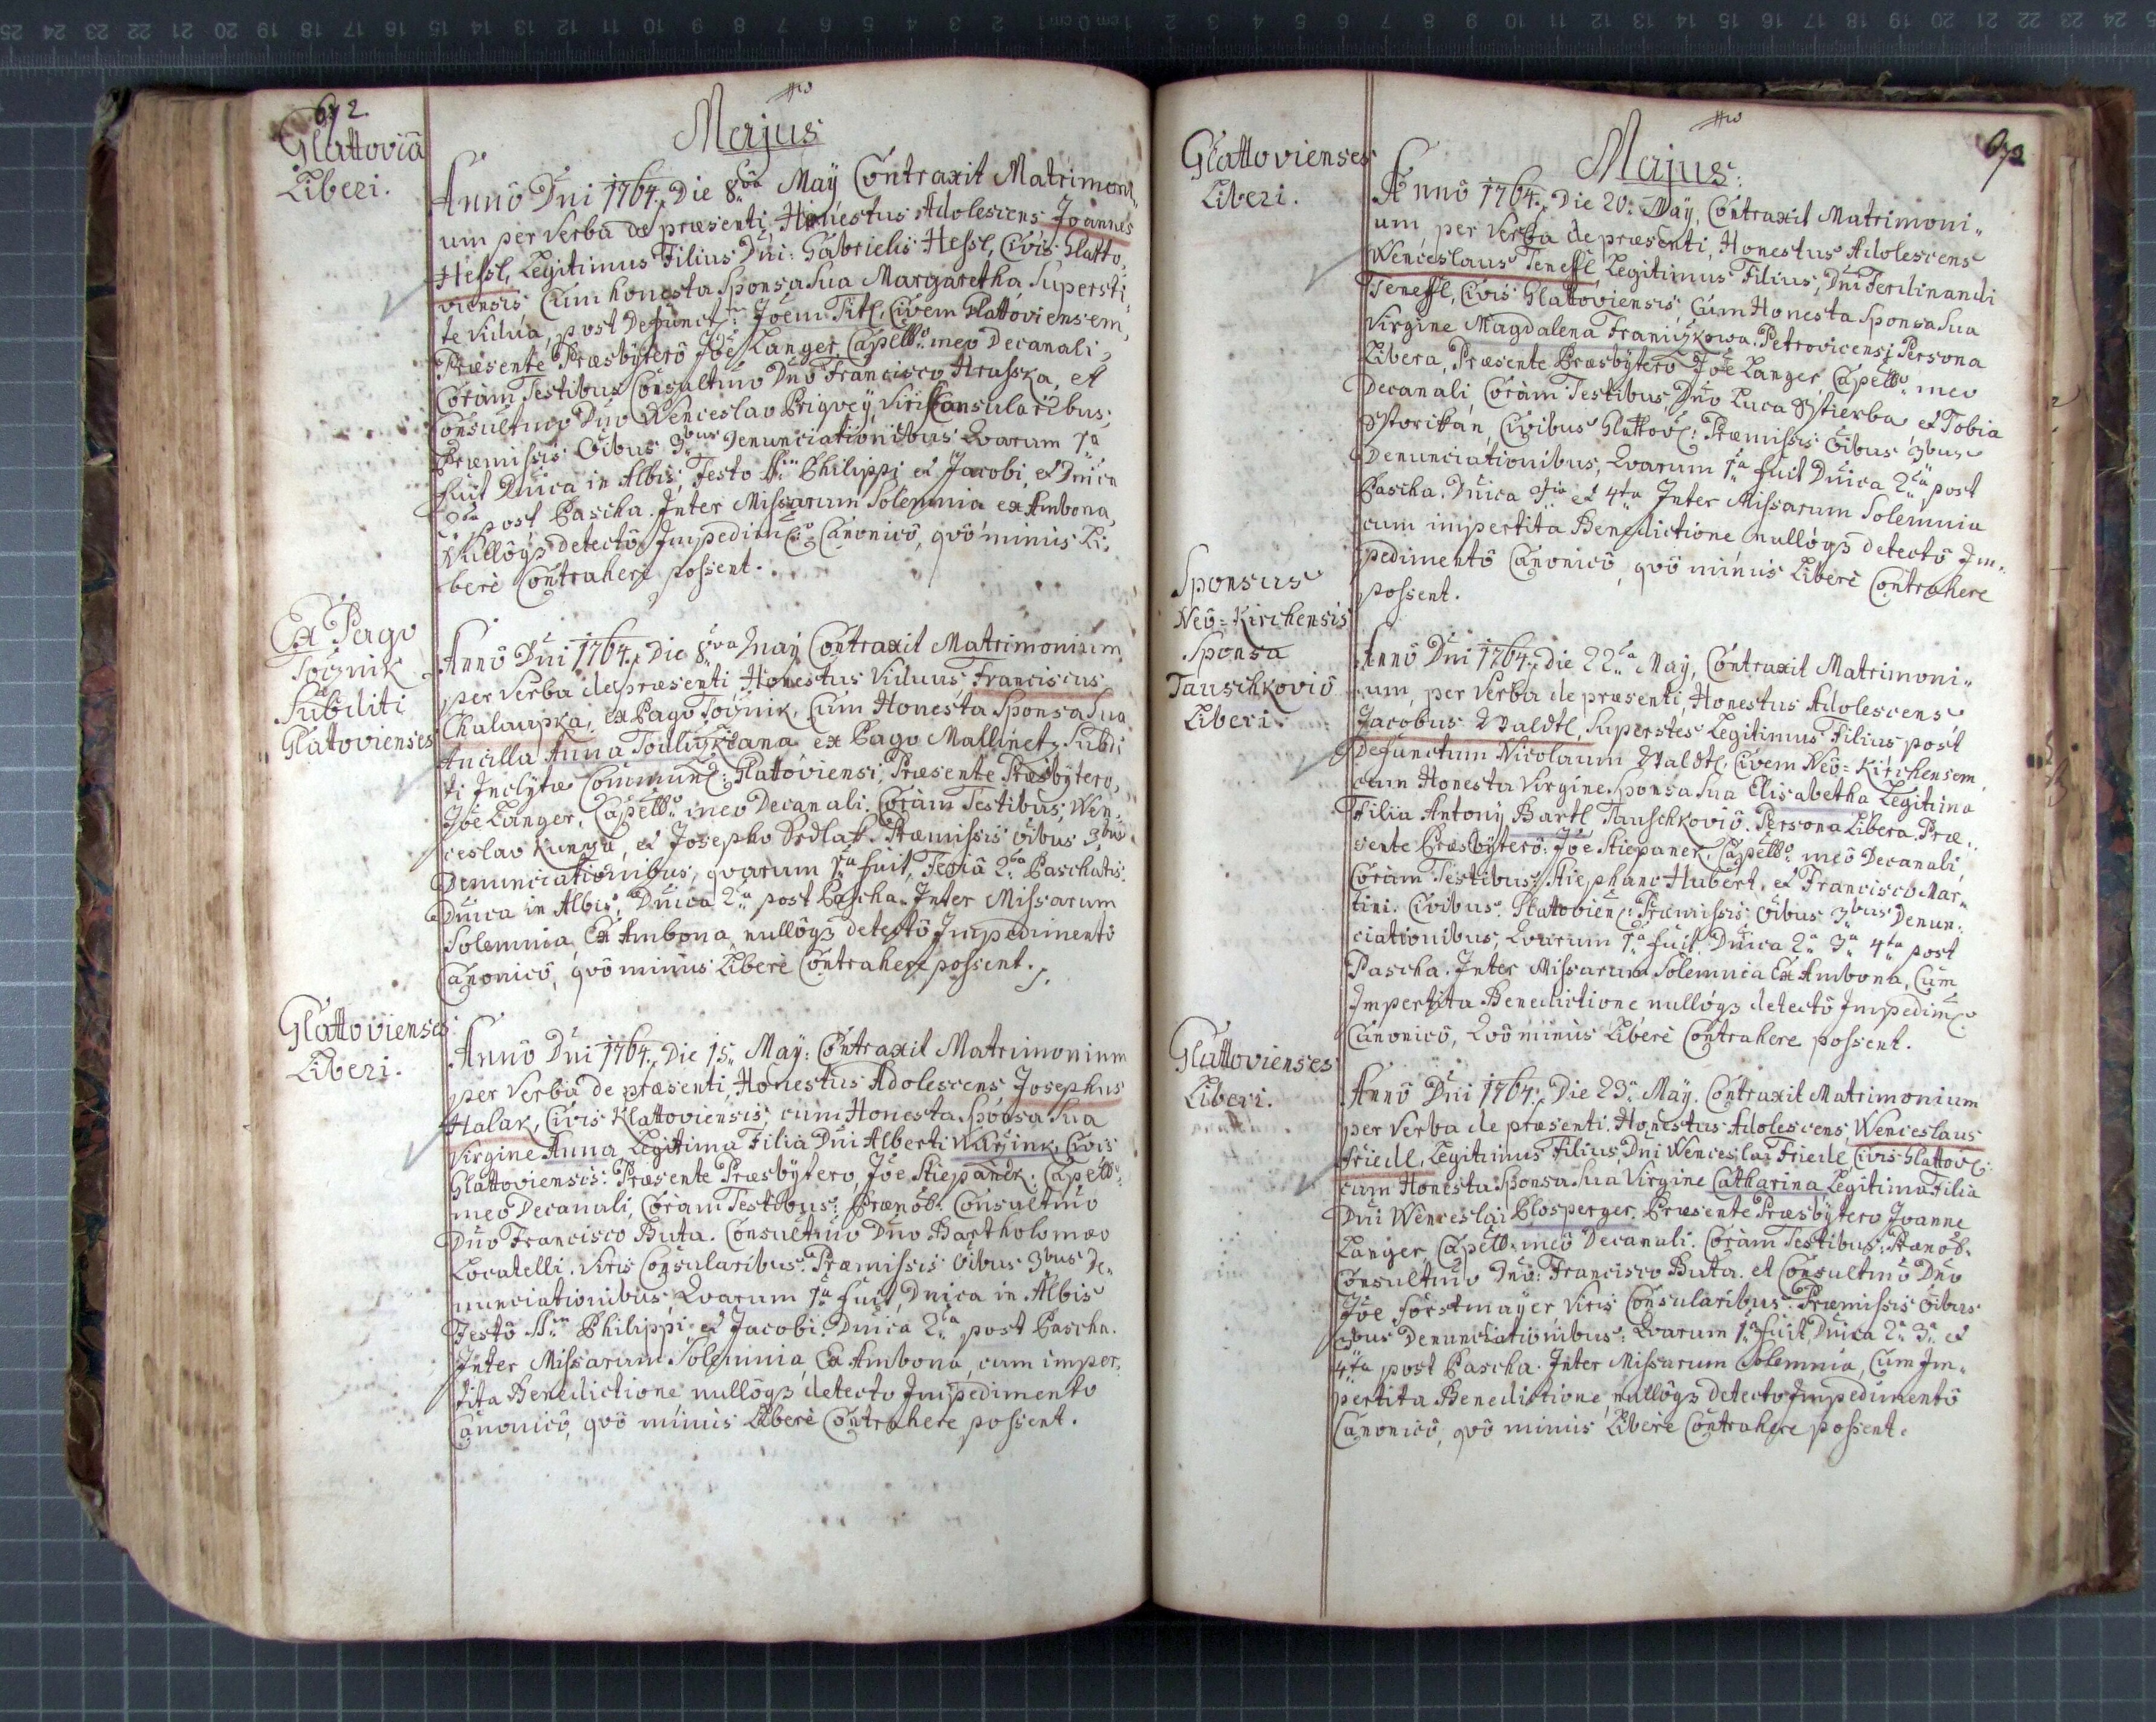 692.
Majus
Glattoviâ
Liberi.
Annô Dni 1764. Die 8va Maÿ Contraxit Matrimoni„
um per Verba de præsenti, Honestus Adolescens Joannes
Hessl, Legitimus Filius Dni: Gabrielis Hessl, Civis Glatto„
viensis Cum honesta Sponsa Sua Margaretha Supersti„
te Vidua, post Defunct: Joem Titl, Civem Glattoviensem,
Præsente Præsbÿterô Jöe Langer, Capello meo Decanali,
Coràm Testibus Consultmo Dnô Francisco Hrusska, et
Consultmo Dno Wenceslao Prigveÿ, Viris Consularibus,
Præmissis õibus 3bus Denunciationibus Qvarum 1a
fuit Dnica in Albis, Festo SS: Philippi et Jacobi, et Dnica
2da post Pascha. Inter Missarum Solemnia ex Ambona,
Nullôqз detectô Impedimto Canonicô, qvô minùs Li„
berè Contrahere possent.
Ex Pago
Točznik
Subditi
Glatovienses
Annô Dni 1764. Die 8va Maÿ Contraxit Matrimonium
per Verba de præsenti Honestus Viduus Franciscus
Chalaupka, ex Pago Točznik, Cum Honesta Sponsa Sua
Ancilla Anna ex Pago Mallinetz, Subdi„
ti Inclÿtæ Commun: Glattoviensi, Præsente Præsbÿtero,
Jöe Langer, Capello meo Decanali. Coràm Testibus, Wen„
ceslao Kunza, et Josepho Sedlak. Præmissis õibus 3bus
Denunciationibus, qvarum 1a fuit, Feriâ 2da Paschatis.
Dnica in Albis, Dnica 2a post Pascha. Inter Missarum
Solemnia Ex Ambona, nullôqз detectô Impedimentô
Canonicô, qvô minùs Liberè Contrahere possent.
Glattovienses
Liberi.
Annô Dni 1764. Die 15. Maÿ: Contraxit Matrimonium
per Verba de præsenti, Honestus Adolescens Josephus
Halak, Civis Klattoviensis, cum Honesta Sponsa Sua
Virgine Anna Legitima Filia Dni Alberti Civis
Glattoviensis. Præsente Præsbÿtero, Jöe Stiepanek. Capello
meo Decanali, Coràm Testibus: Prænob. Consultmo
Dno Francisco Buta. Consultmo Dno Bartholomæo
Locatelli. Viris Consularibus. Præmissis õibus 3bus De„
nunciationibus, Qvarum 1a fuit, Dnica in Albis
Festô SS. Philippi et Jacobi. Dnica 2da post Pascha.
Inter Missarum Solemnia, Ex Ambona, cum imper„
tita Benedictione nullôqз detecto Impedimento
Canonicô, qvô minùs Liberè Contrahere possent.
693
Majus.
Glattovienses
Liberi.
Annô 1764. Die 20. Maÿ, Contraxit Matrimoni„
um per Verba de præsenti, Honestus Adolescens
Wenceslaus Teneffl, Legitimus Filius, Dni Ferdinandi
Teneffl, Civis Glattoviensis, Cùm Honesta Sponsa Sua
Virgine Magdalena Petrovicensj Persona
Libera, Præsente Præsbÿterô Jöe Langer Capello meo
Decanali, Coràm Testibus, Dño Luca Sstierba et Tobia
Civibus Glattov: Præmissis õibus 3bus
Denunciationibus, Qvarum 1a fuit Dnica 2da post
Pascha. Dnica 3tia et 4ta Inter Missarum Solemnia
cum impertita Benedictione nullôqз detectô Im„
pedimentô Canonicô, qvô minùs Liberè Contrahere
possent.
Sponsus
Neô=Kirchensis
Sponsa
Tauschkoviô
Liberi.
Annô Dni 1764. Die 22da Maÿ, Contraxit Matrimoni„
um, per Verba de præsenti, Honestus Adolescens
Jacobus Waldtl, Superstes Legitimus Filius post
Defunctum Nicolaum Waldtl, Civem Neô=Kirchensem,
cum Honesta Virgine Sponsa Sua Elisabetha Legitima
Filia Antonÿ Bartl Tauschkoviô. Persona Libera. Præ„
sente Præsbÿterô: Jöe Stiepanek, Capello meô Decanali,
Coràm Testibus: Stiephano Hubert, et Francisco Mar„
tini. Civibus. Glattovien: Præmissis õibus 3bus Denun„
ciationibus, Qvarum 1a fuit Dnica 2a 3a 4ta post
Pascha. Inter Missarum Solemnia Ex Ambona, Cum
Impertita Benedictione nullôqз detectô Impedimto
Canonicô, Qvô minùs Liberè Contrahere possent.
Glattovienses
Liberi.
Annô Dni 1764. Die 23a Maÿ. Contraxit Matrimonium
per Verba de præsenti. Honestus Adolescens, Wenceslaus
Friedl, Legitimus Filius, Dni Wenceslai Friedl, Civis Glattov:
cum Honesta Sponsa Sua Virgine Catharina, Legitima Filia
Dni Wenceslai Plosperger. Præsente Præsbÿtero Joanne
Langer, Capello meô Decanali. Coràm Testibus: Prænob.
Consultmo Dnô: Francisco Buta. et Consultmô Dnô
Jöe Forstmaÿer Viris Consularibus. Præmissis õibus
3bus Denunciationibus: Qvarum 1a fuit, Dnica 2a 3a et
4ta post Pascha. Inter Missarum Solemnia, Cum Im„
pertita Benedictione, nullôqз detecto Impedimentô
Canonicô, qvô minùs Liberè Contrahere possent.